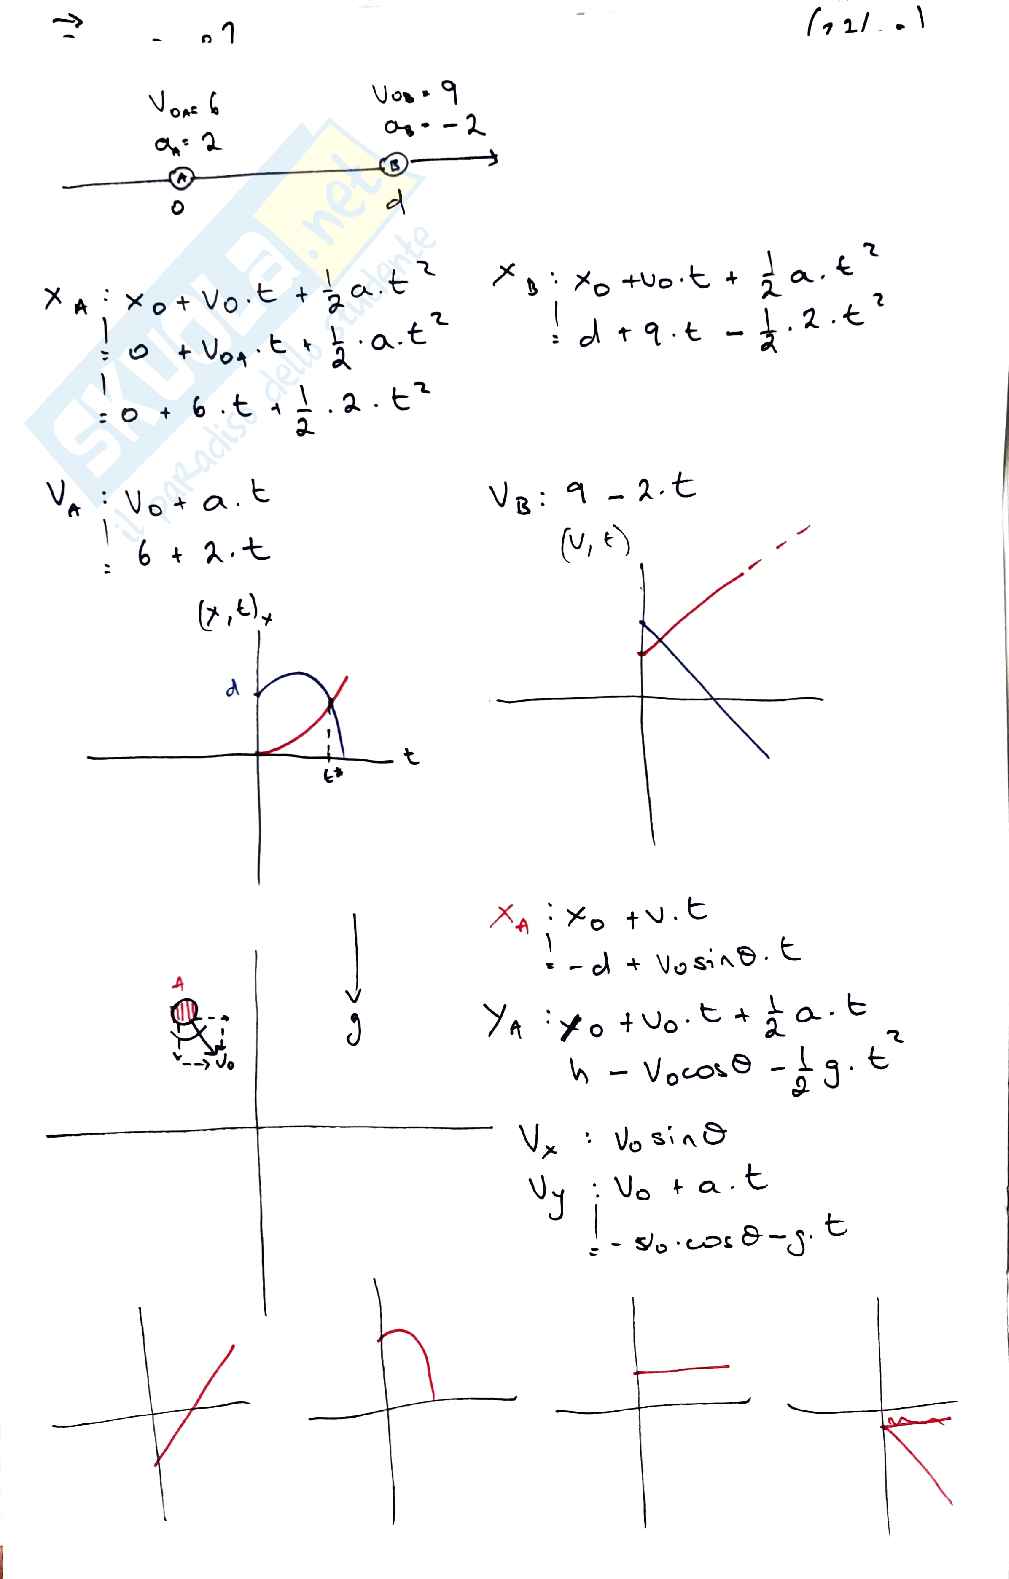 V₀A = 6
a_A = 2
V₀B = 9
a_B = -2
A
B
0
d
x_A : x₀ + v₀·t + 1/2 a·t²
= 0 + v₀A·t + 1/2·a·t²
= 0 + 6·t + 1/2·2·t²
x_B : x₀ + v₀·t + 1/2 a·t²
= d + 9·t - 1/2·2·t²
V_A : V₀ + a·t
= 6 + 2·t
V_B : 9 - 2·t
(v, t)
(x, t)
x
d
t
t*
A
v₀
g
x_A : x₀ + v·t
= -d + v₀ sinθ·t
y_A : y₀ + v₀·t + 1/2 a·t
h - v₀cosθ - 1/2 g·t²
V_x : v₀ sinθ
V_y : v₀ + a·t
= - v₀·cosθ - g·t
SKUOLA.net
il paradiso dello studente